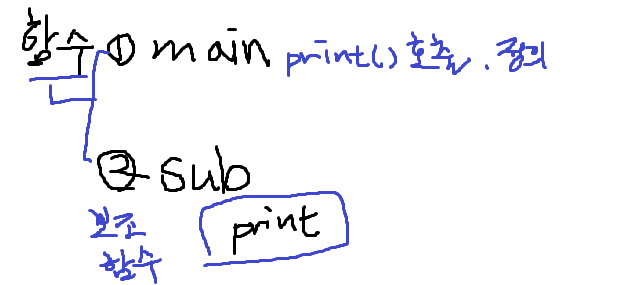 함수 ① main print() 호출, 정의
② sub
보조 print
함수